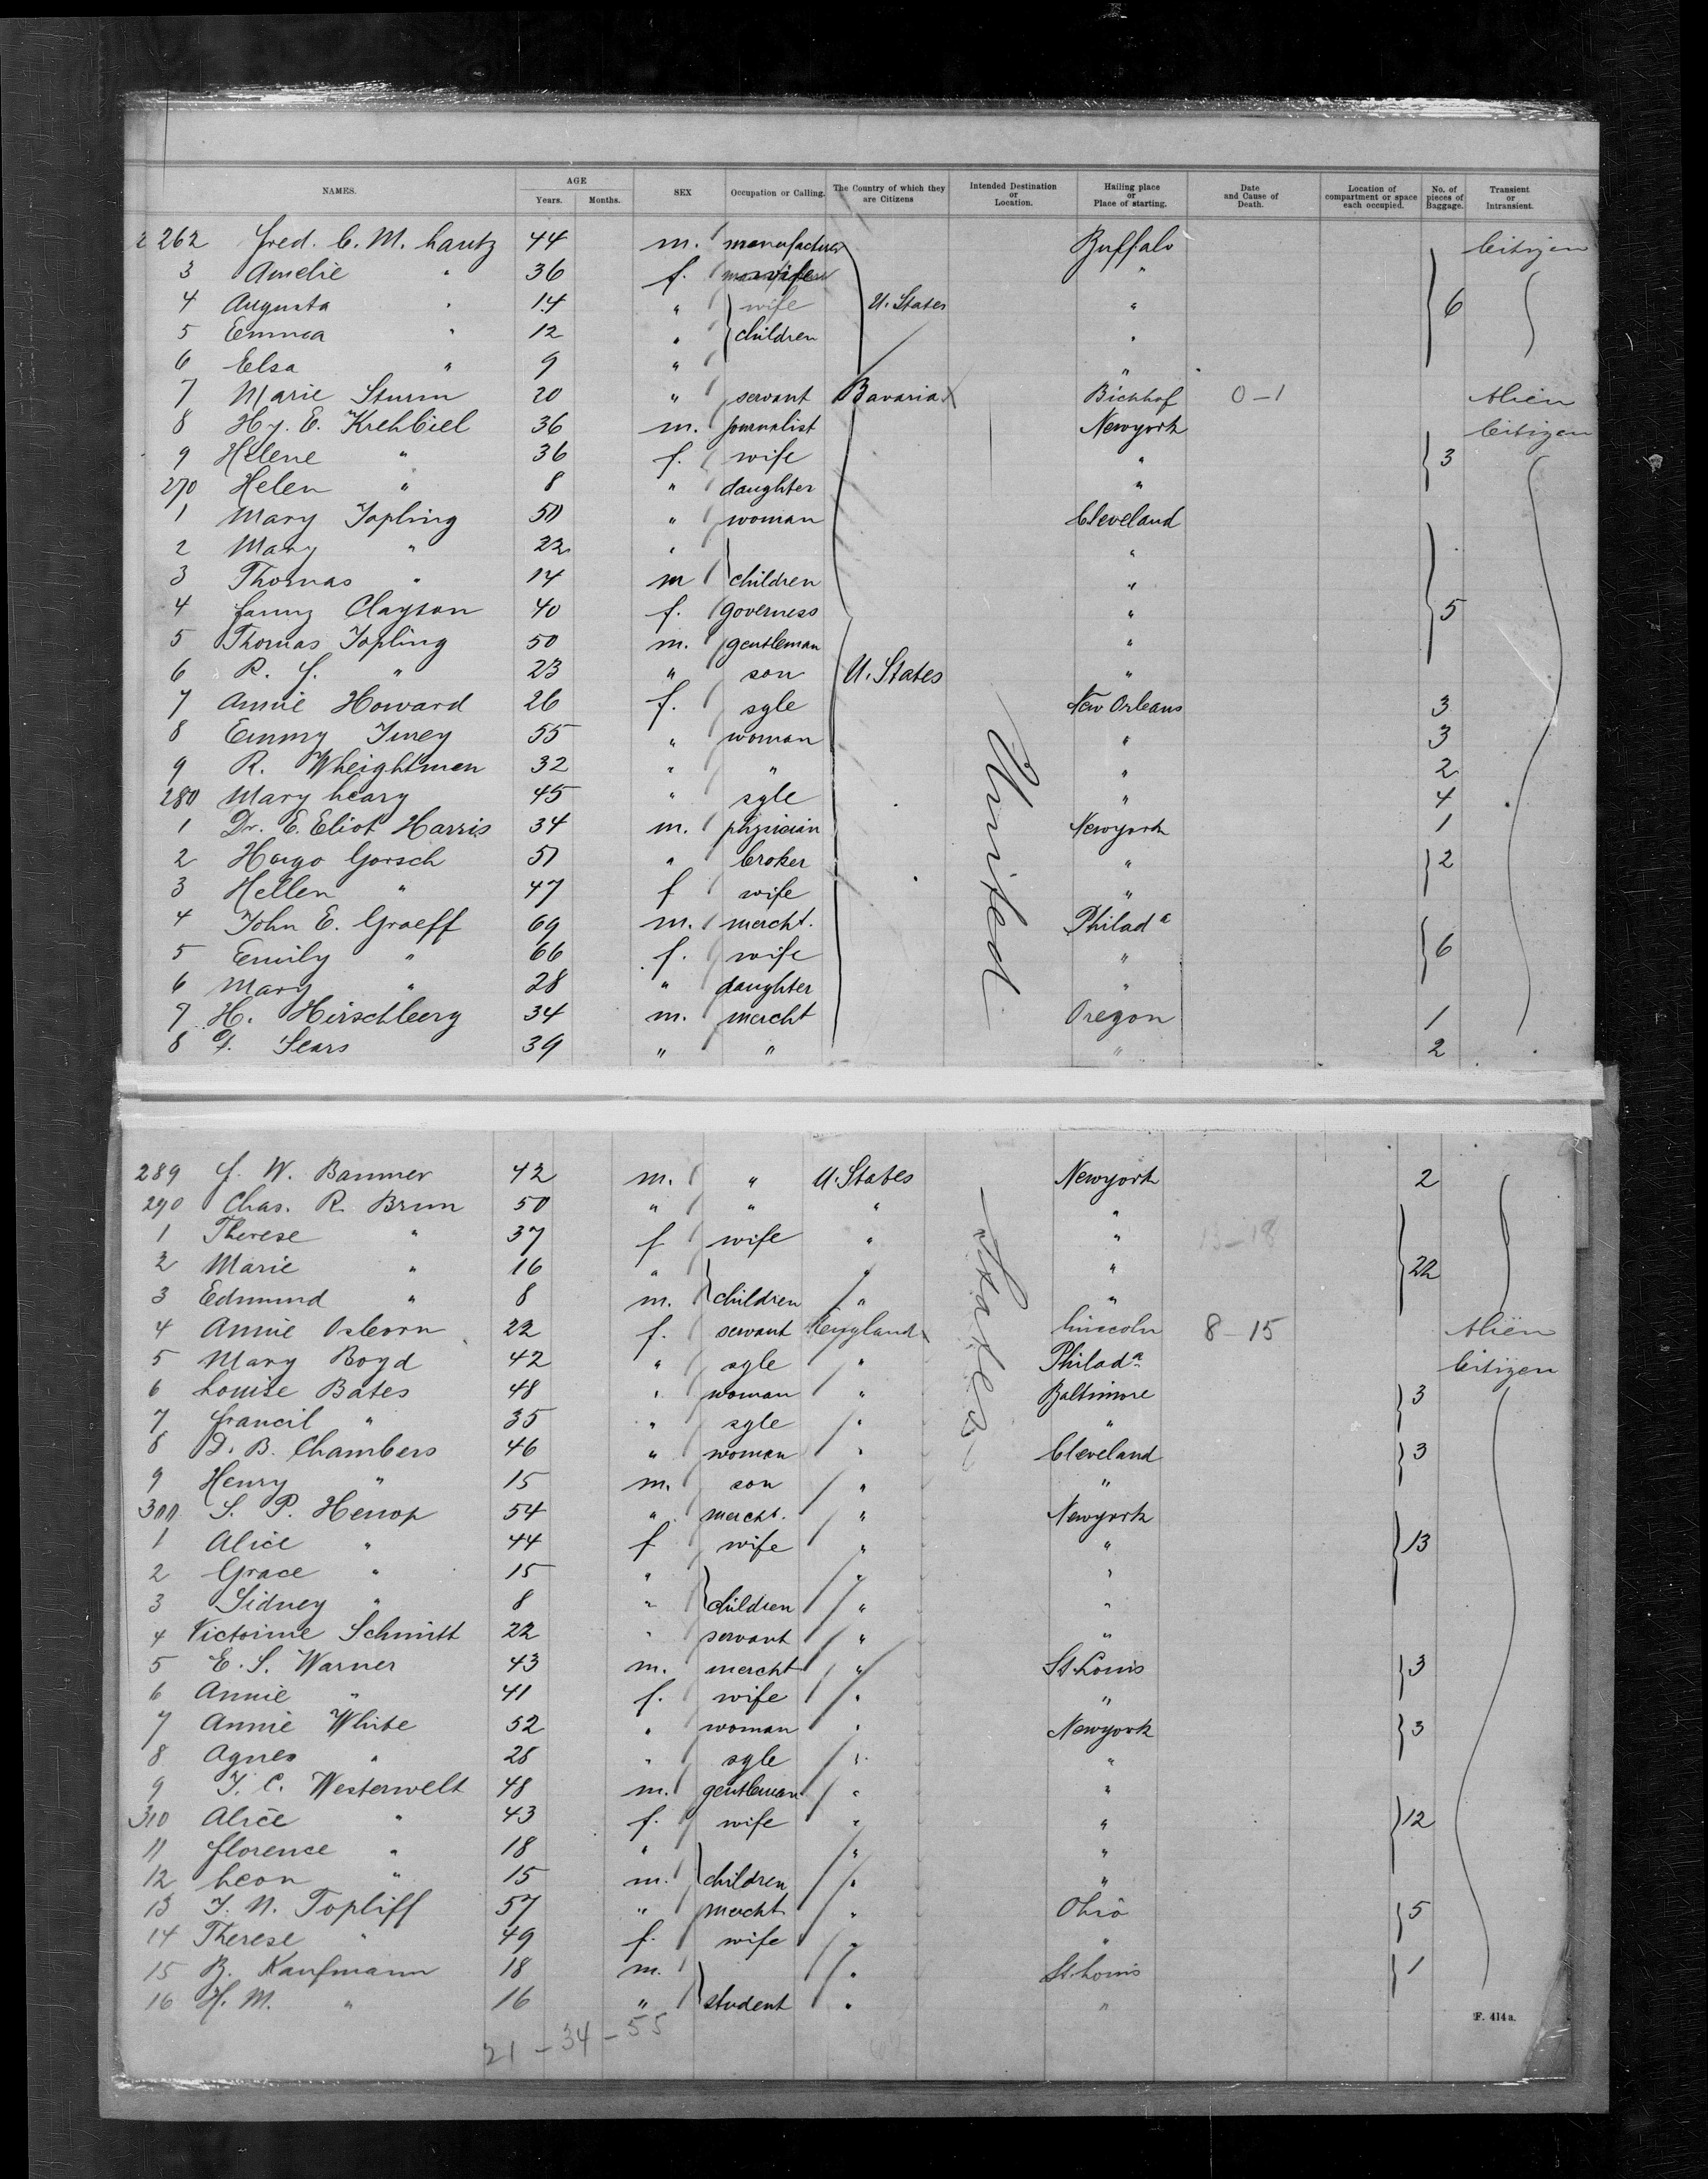 NAMES. AGE Years. Months. SEX Occupation or Calling. The Country of which they are Citizens Intended Destination or Location. Hailing place or Place of starting. Date and Cause of Death. Location of compartment or space each occupied. No. of pieces of Baggage. Transient or Intransient.
262 Fred. C. M. Lautz 44 m. manufacturer Buffalo Citizen
3 Amelie " 36 f. wife "
4 Augusta " 14 " wife U. States " 6
5 Emma " 12 " children "
6 Elsa " 9 " "
7 Marie Sturm 20 " servant Bavaria Bichhof 0-1 Alien
8 Hy. E. Krehbiel 36 m. journalist Newyork Citizen
9 Helene " 36 f. wife " 3
270 Helen " 8 " daughter "
1 Mary Topling 50 " woman Cleveland
2 Mary " 22 " "
3 Thomas " 14 m children "
4 Fanny Clayson 40 f. governess " 5
5 Thomas Topling 50 m. gentleman "
6 R. F. " 23 " son U. States "
7 Annie Howard 26 f. sgle New Orleans 3
8 Emmy 55 " woman " 3
9 R. Wheightman 32 " " " 2
280 Mary Leary 45 " sgle " 4
1 Dr. E. Eliot Harris 34 m. physician Newyork 1
2 Hugo Gorsch 51 " broker " 2
3 Hellen " 47 f wife "
4 John E. Graeff 69 m. mercht. Philada
5 Emily " 66 f. wife " 6
6 Mary " 28 " daughter "
7 H. Hirschberg 34 m. mercht Oregon 1
8 Sears 39 " " " 2
United
289 J. W. Banmer 42 m. " U. States Newyork 2
290 Chas. R. Brun 50 " " " "
1 Therese " 37 f wife " " 13-18
2 Marie " 16 " " " 22
3 Edmund " 8 m. children " "
4 Annie Osborn 22 f. servant England Lincoln 8-15 Alien
5 Mary Boyd 42 " sgle " Philada Citizen
6 Louise Bates 48 " woman " Baltimore 3
7 Francil " 35 " sgle " "
8 D. B. Chambers 46 " woman " Cleveland 3
9 Henry " 15 m. son " "
300 S. P. Henop 54 " mercht. " Newyork
1 Alice " 44 f wife " " 13
2 Grace " 15 " " "
3 Sidney " 8 " children " "
4 Victorine Schmitt 22 " servant " "
5 E. S. Warner 43 m. mercht " St Louis 3
6 Annie " 41 f. wife " "
7 Annie White 52 " woman " Newyork 3
8 Agnes " 25 " sgle " "
9 Westerwelt 48 m. gentleman " "
310 Alice " 43 f. wife " " 12
11 Florence " 18 " " "
12 Leon " 15 m. children " "
13 Topliff 57 " mercht " Ohio 5
14 Therese " 49 f. wife " "
15 B. Kaufmann 18 m. " St Louis 1
16 H. M. " 16 " student " "
States
F. 414a.
21-34-55